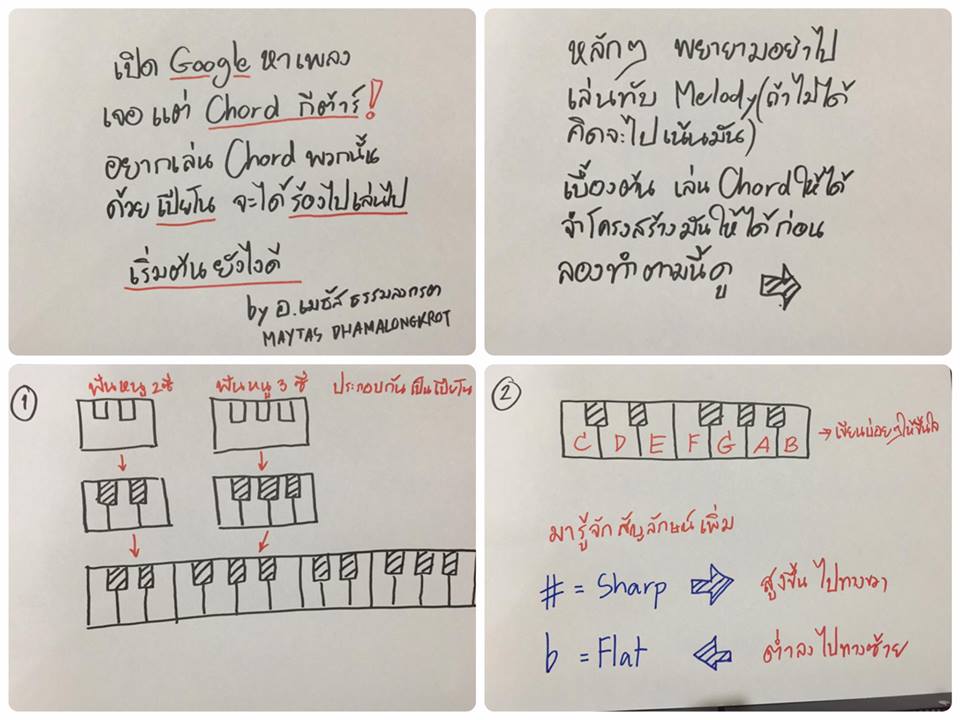 เปิด Google หาเพลง
เจอแต่ Chord กีต้าร์!
อยากเล่น Chord พวกนั้น
ด้วย เปียโน จะได้ ร้องไปเล่นไป
เริ่มต้นยังไงดี
by อ.เมธัส ธรรมลงกรต
MAYTAS DHAMALONGKROT
หลักๆ พยายามอย่าไป
เล่นทับ Melody(ถ้าไม่ได้
คิดจะไปเน้นมัน)
เบื้องต้น เล่น Chord ให้ได้
จำโครงสร้างมันให้ได้ก่อน
ลองทำตามนี้ดู
1
ฟันหนู 2 ซี่ ฟันหนู 3 ซี่ ประกอบกันเป็นเปียโน
2
C D E F G A B
เขียนบ่อยๆให้ขึ้นใจ
มารู้จักสัญลักษณ์เพิ่ม
# = Sharp สูงขึ้น ไปทางขวา
b = Flat ต่ำลง ไปทางซ้าย